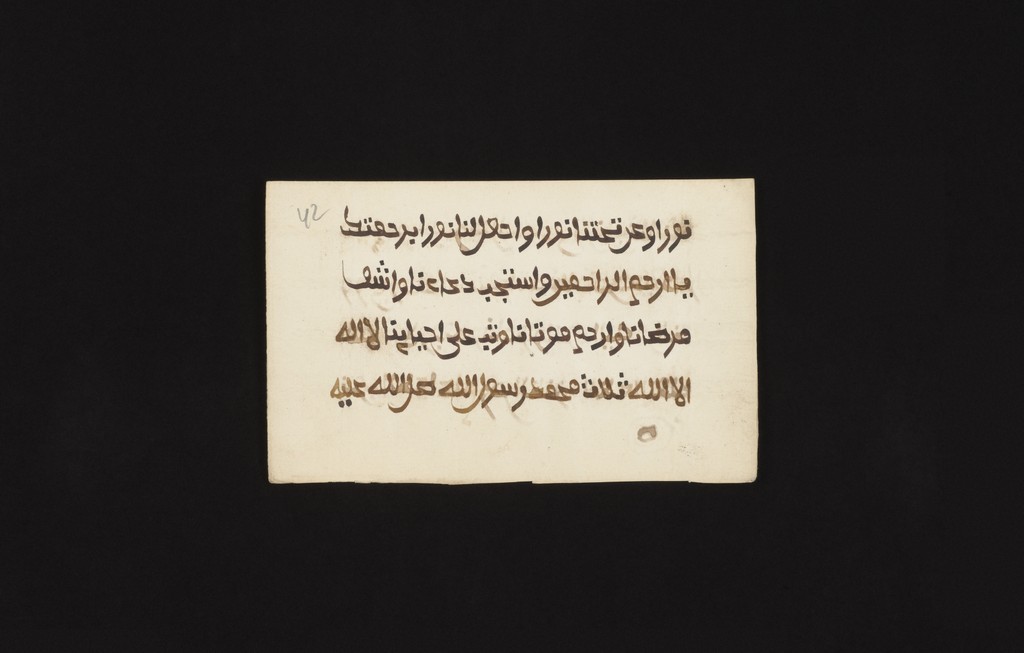 42
نورا وعن تحتنا نورا واجعل لنا نورا برحمتك
يا ارحم الراحمين واستجب دعاءنا واشف
مرضانا وارحم موتانا وتب على احياينا لا اله
الا الله ثلاث محمد رسول الله صلى الله عليه